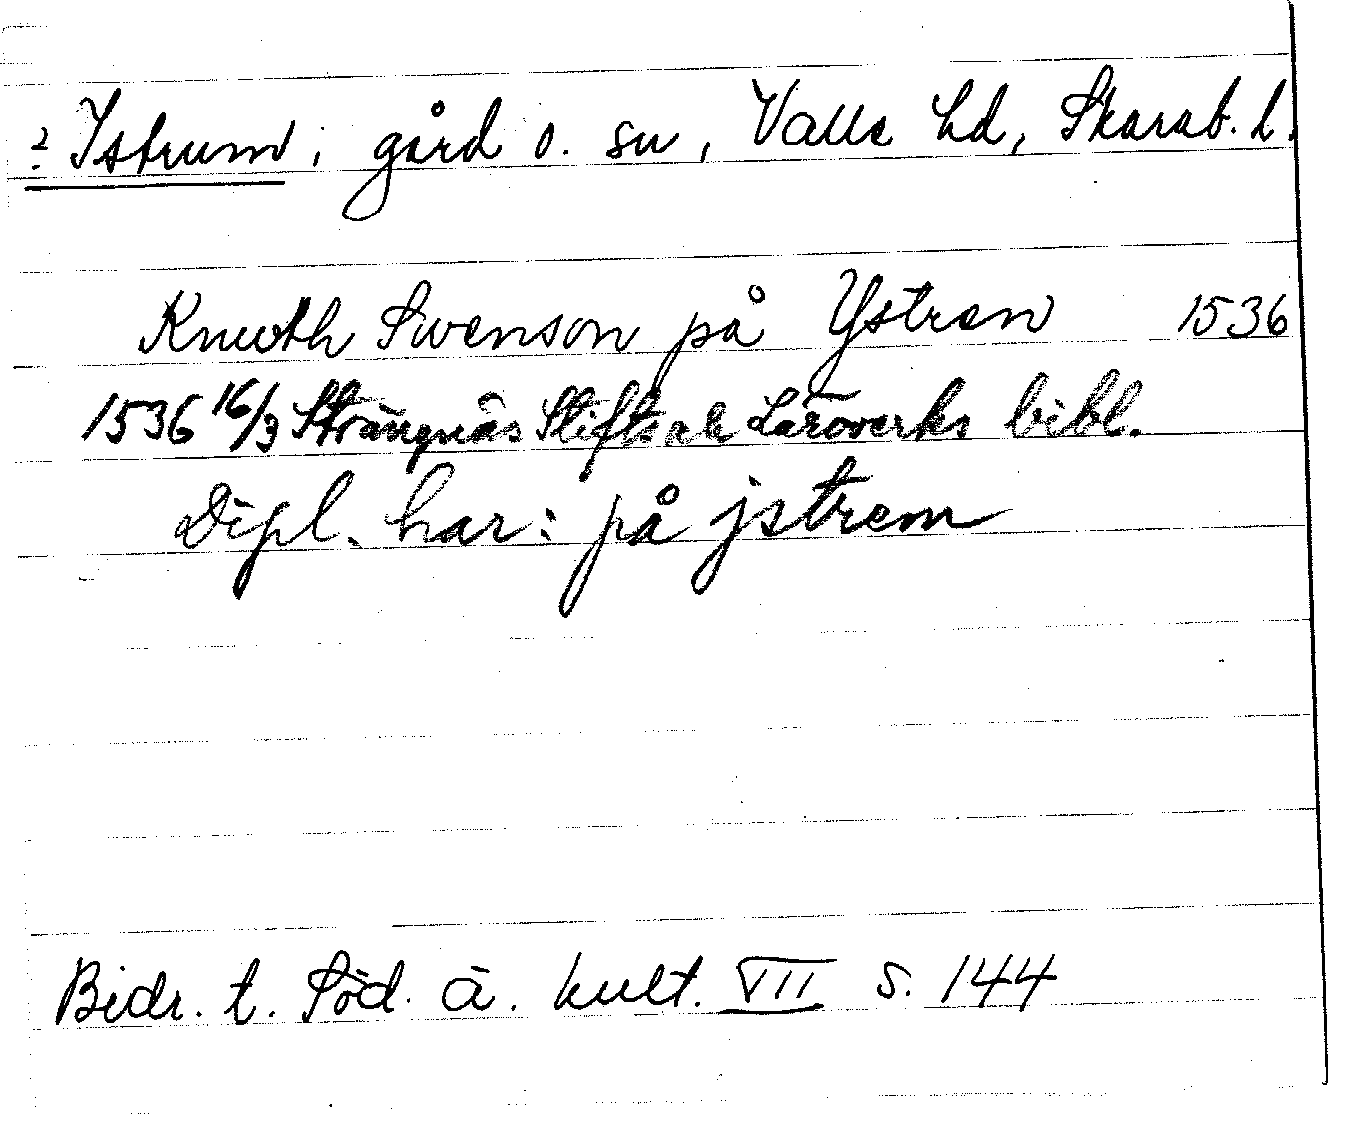 ? Istrum, gård o. sn, Valle hd, Skarab. l.
Knwth Swenson på Ystren 1536
1536 16/3 Strängnäs Stifts och Läroverks bibl.
Dipl. har: på jstrem
Bidr. t. Söd. ä. kult. VII s. 144